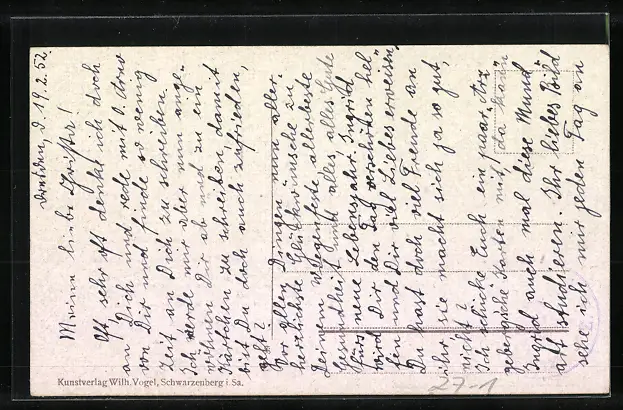 Dresden, d. 19.2.52.
Meine liebe Christa!
Oft sehr oft denke ich doch
an Dich und rede mit
von Dir und finde so wenig
Zeit an Dich zu schreiben.
Ich werde mir aber nun ange-
wöhnen Dir ab und zu ein
Kärtchen zu schreiben damit
bist Du doch auch zufrieden,
gell?
Vor allen Dingen nun aller-
herzlichste Glückwünsche zu
Deinem Wiegenfeste allerbeste
Gesundheit und alles alles Gute
fürs neue Lebensjahr. Ingrid
wird Dir den Tag verschönen hel-
fen und Dir viel Liebes erweisen,
Du hast doch viel Freude an
ihr sie macht sich ja so gut,
nicht?
Ich schicke Euch ein paar Erz-
gebirgische Karten mit, da kann
Ingrid auch mal diese Mund-
art studieren. Ihr liebes Bild
sehe ich mir jeden Tag an
Kunstverlag Wilh. Vogel, Schwarzenberg i. Sa.
27-1